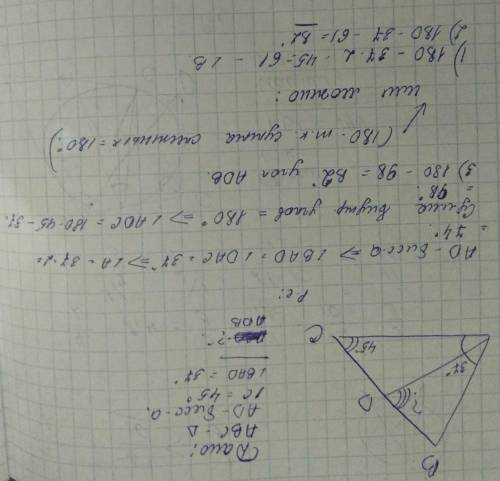 Дано:
ABC - Δ
AD - бисс-а.
∠C = 45°
∠BAD = 37°
ADB - ?
B
D
?
37°
45°
C
Р-е:
AD - бисс-а ⇒ ∠BAD = ∠DAC = 37° ⇒ ∠A = 37·2 =
= 74°.
Сумме внутр углов = 180° ⇒ ∠ADC = 180-45-37.
= 98°
3) 180 - 98 = 82° угол ADB.
(180 - т.к сумма смежных = 180°)
или можно:
1) 180 - 37·2 - 45 = 61 - ∠B
2) 180 - 37 - 61 = 82°